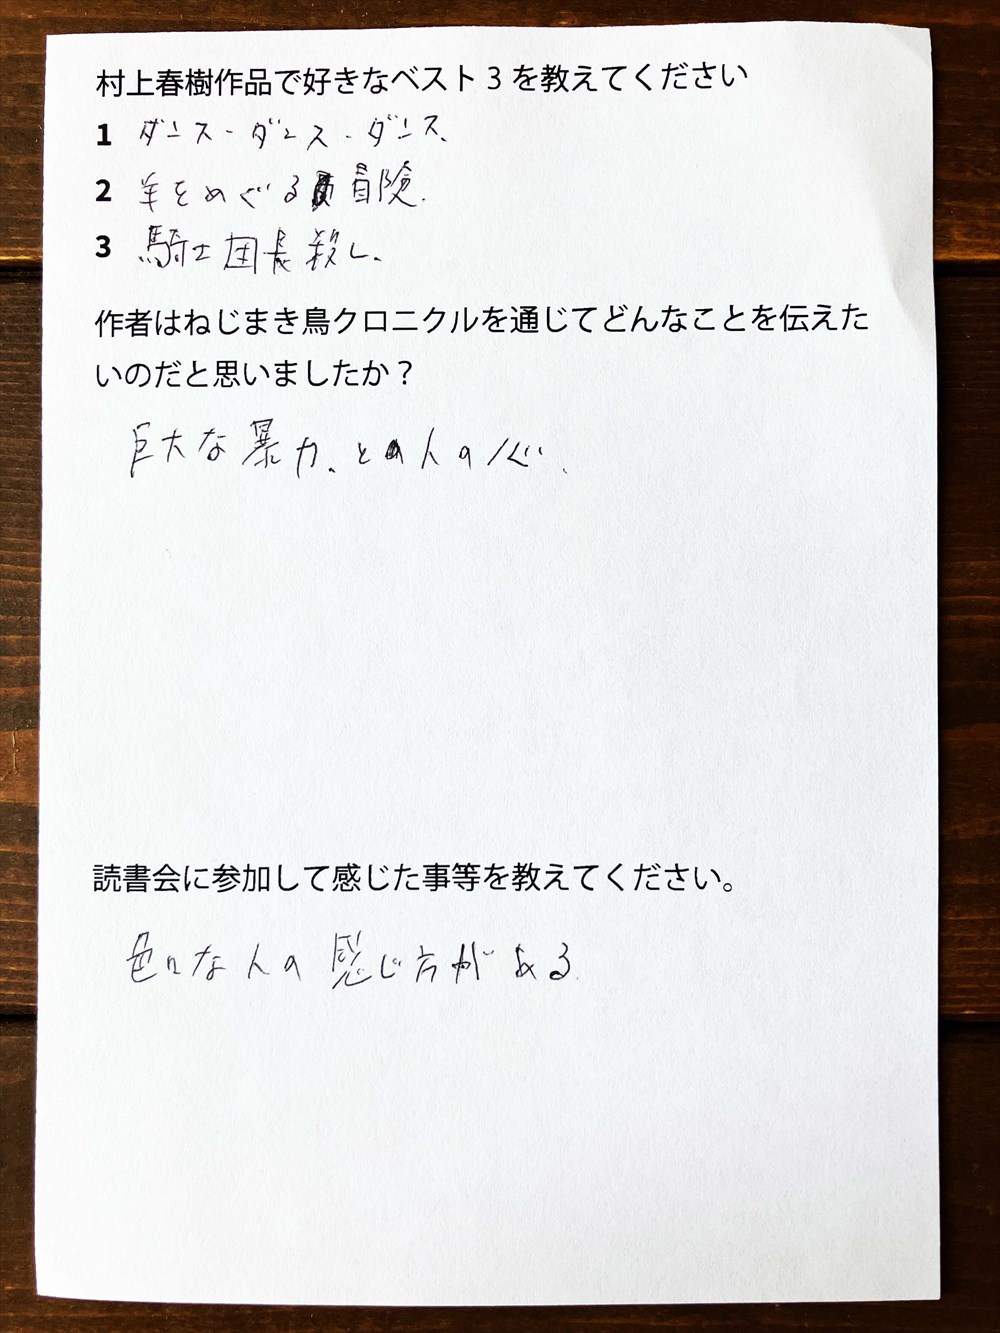 村上春樹作品で好きなベスト３を教えてください
1 ダンス・ダンス・ダンス、
2 羊をめぐる冒険.
3 騎士団長殺し、
作者はねじまき鳥クロニクルを通じてどんなことを伝えた
いのだと思いましたか？
巨大な暴力、と人の心.
読書会に参加して感じた事等を教えてください。
色々な人の感じ方がある.